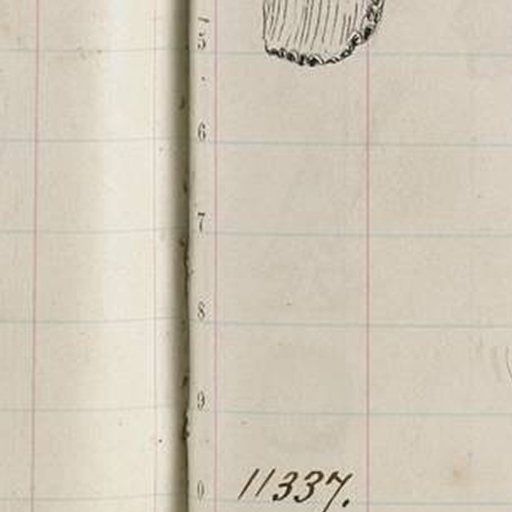 5
6
7
8
9
0
11337.